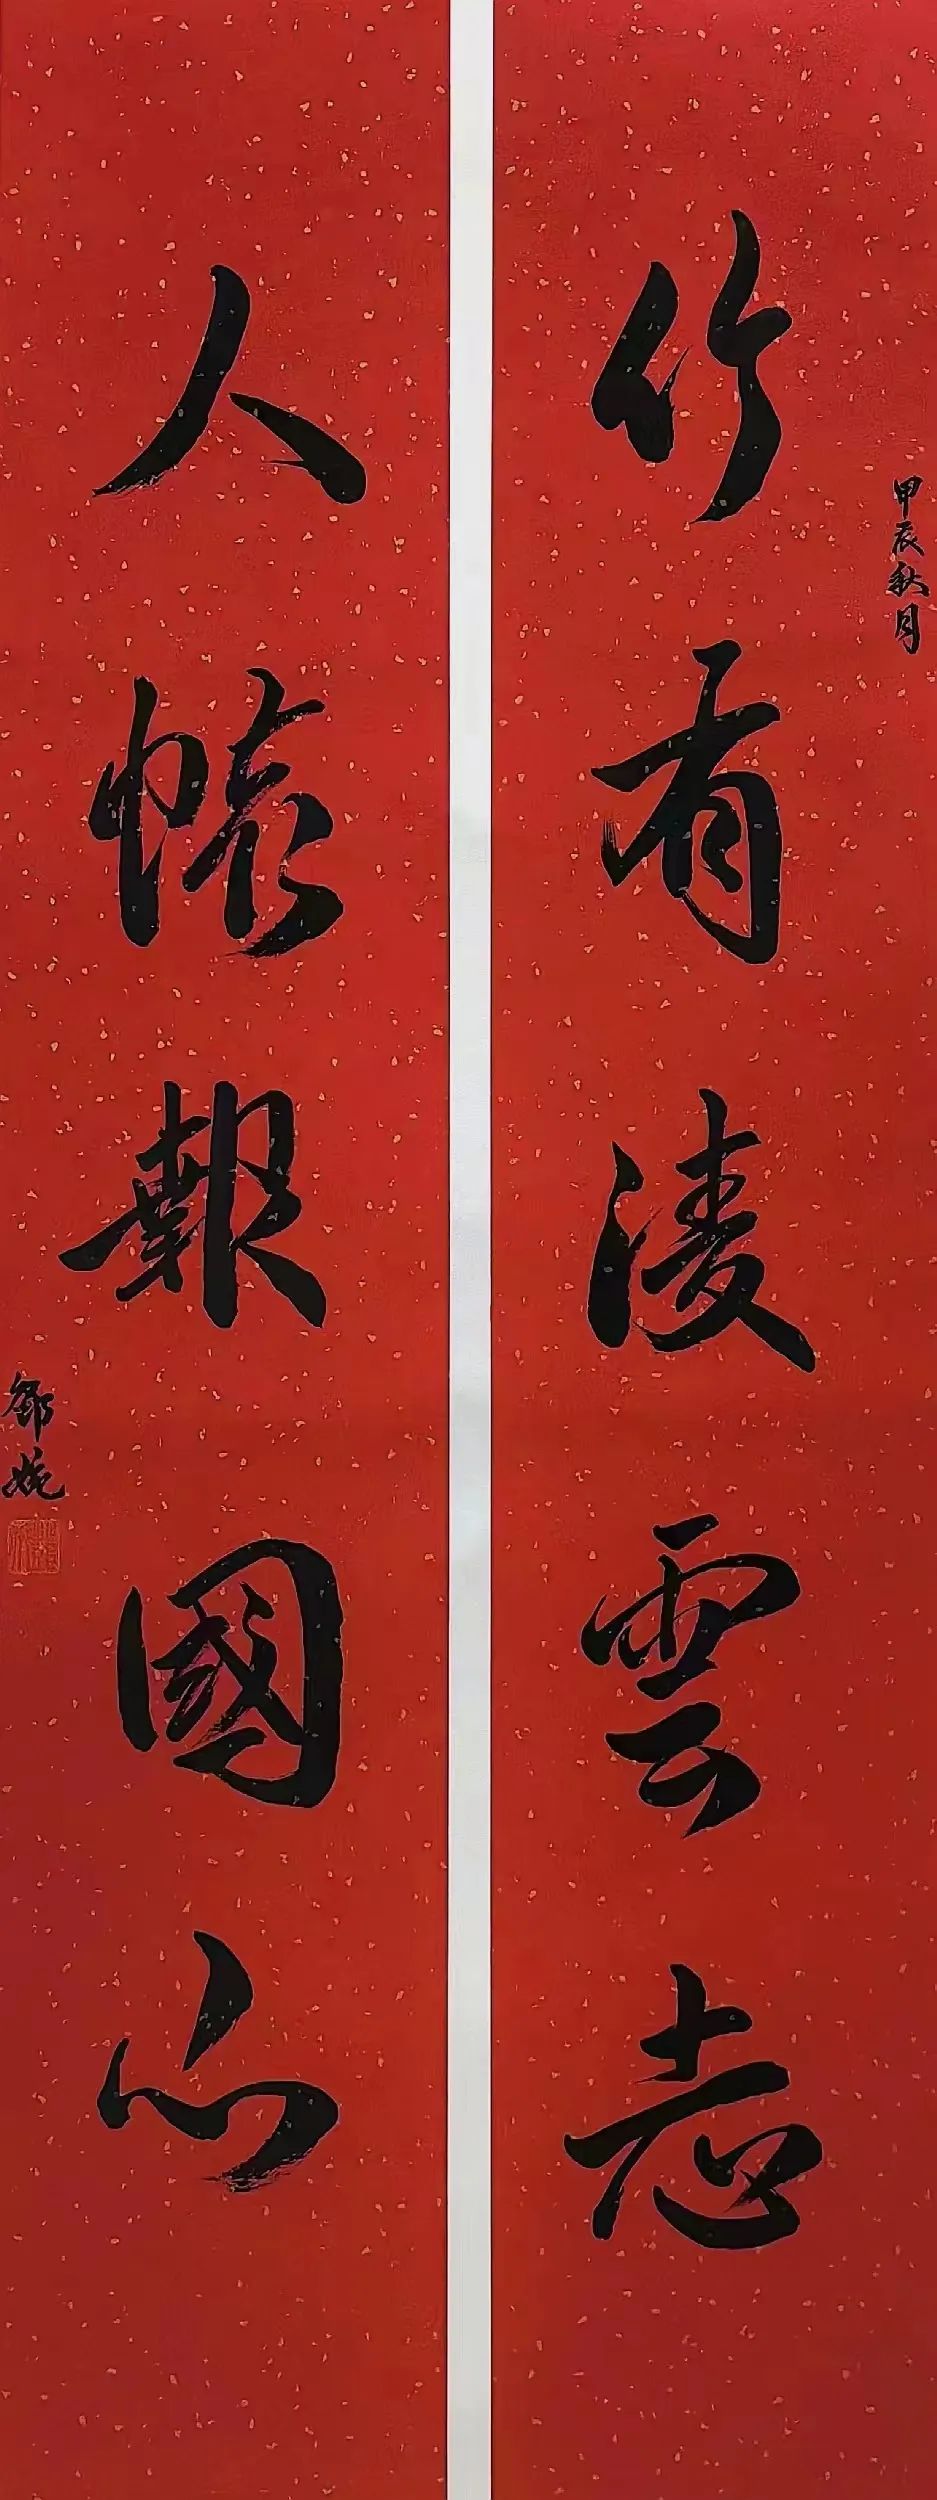 竹有凌雲志
甲辰秋月
人懷報國心
邵婉